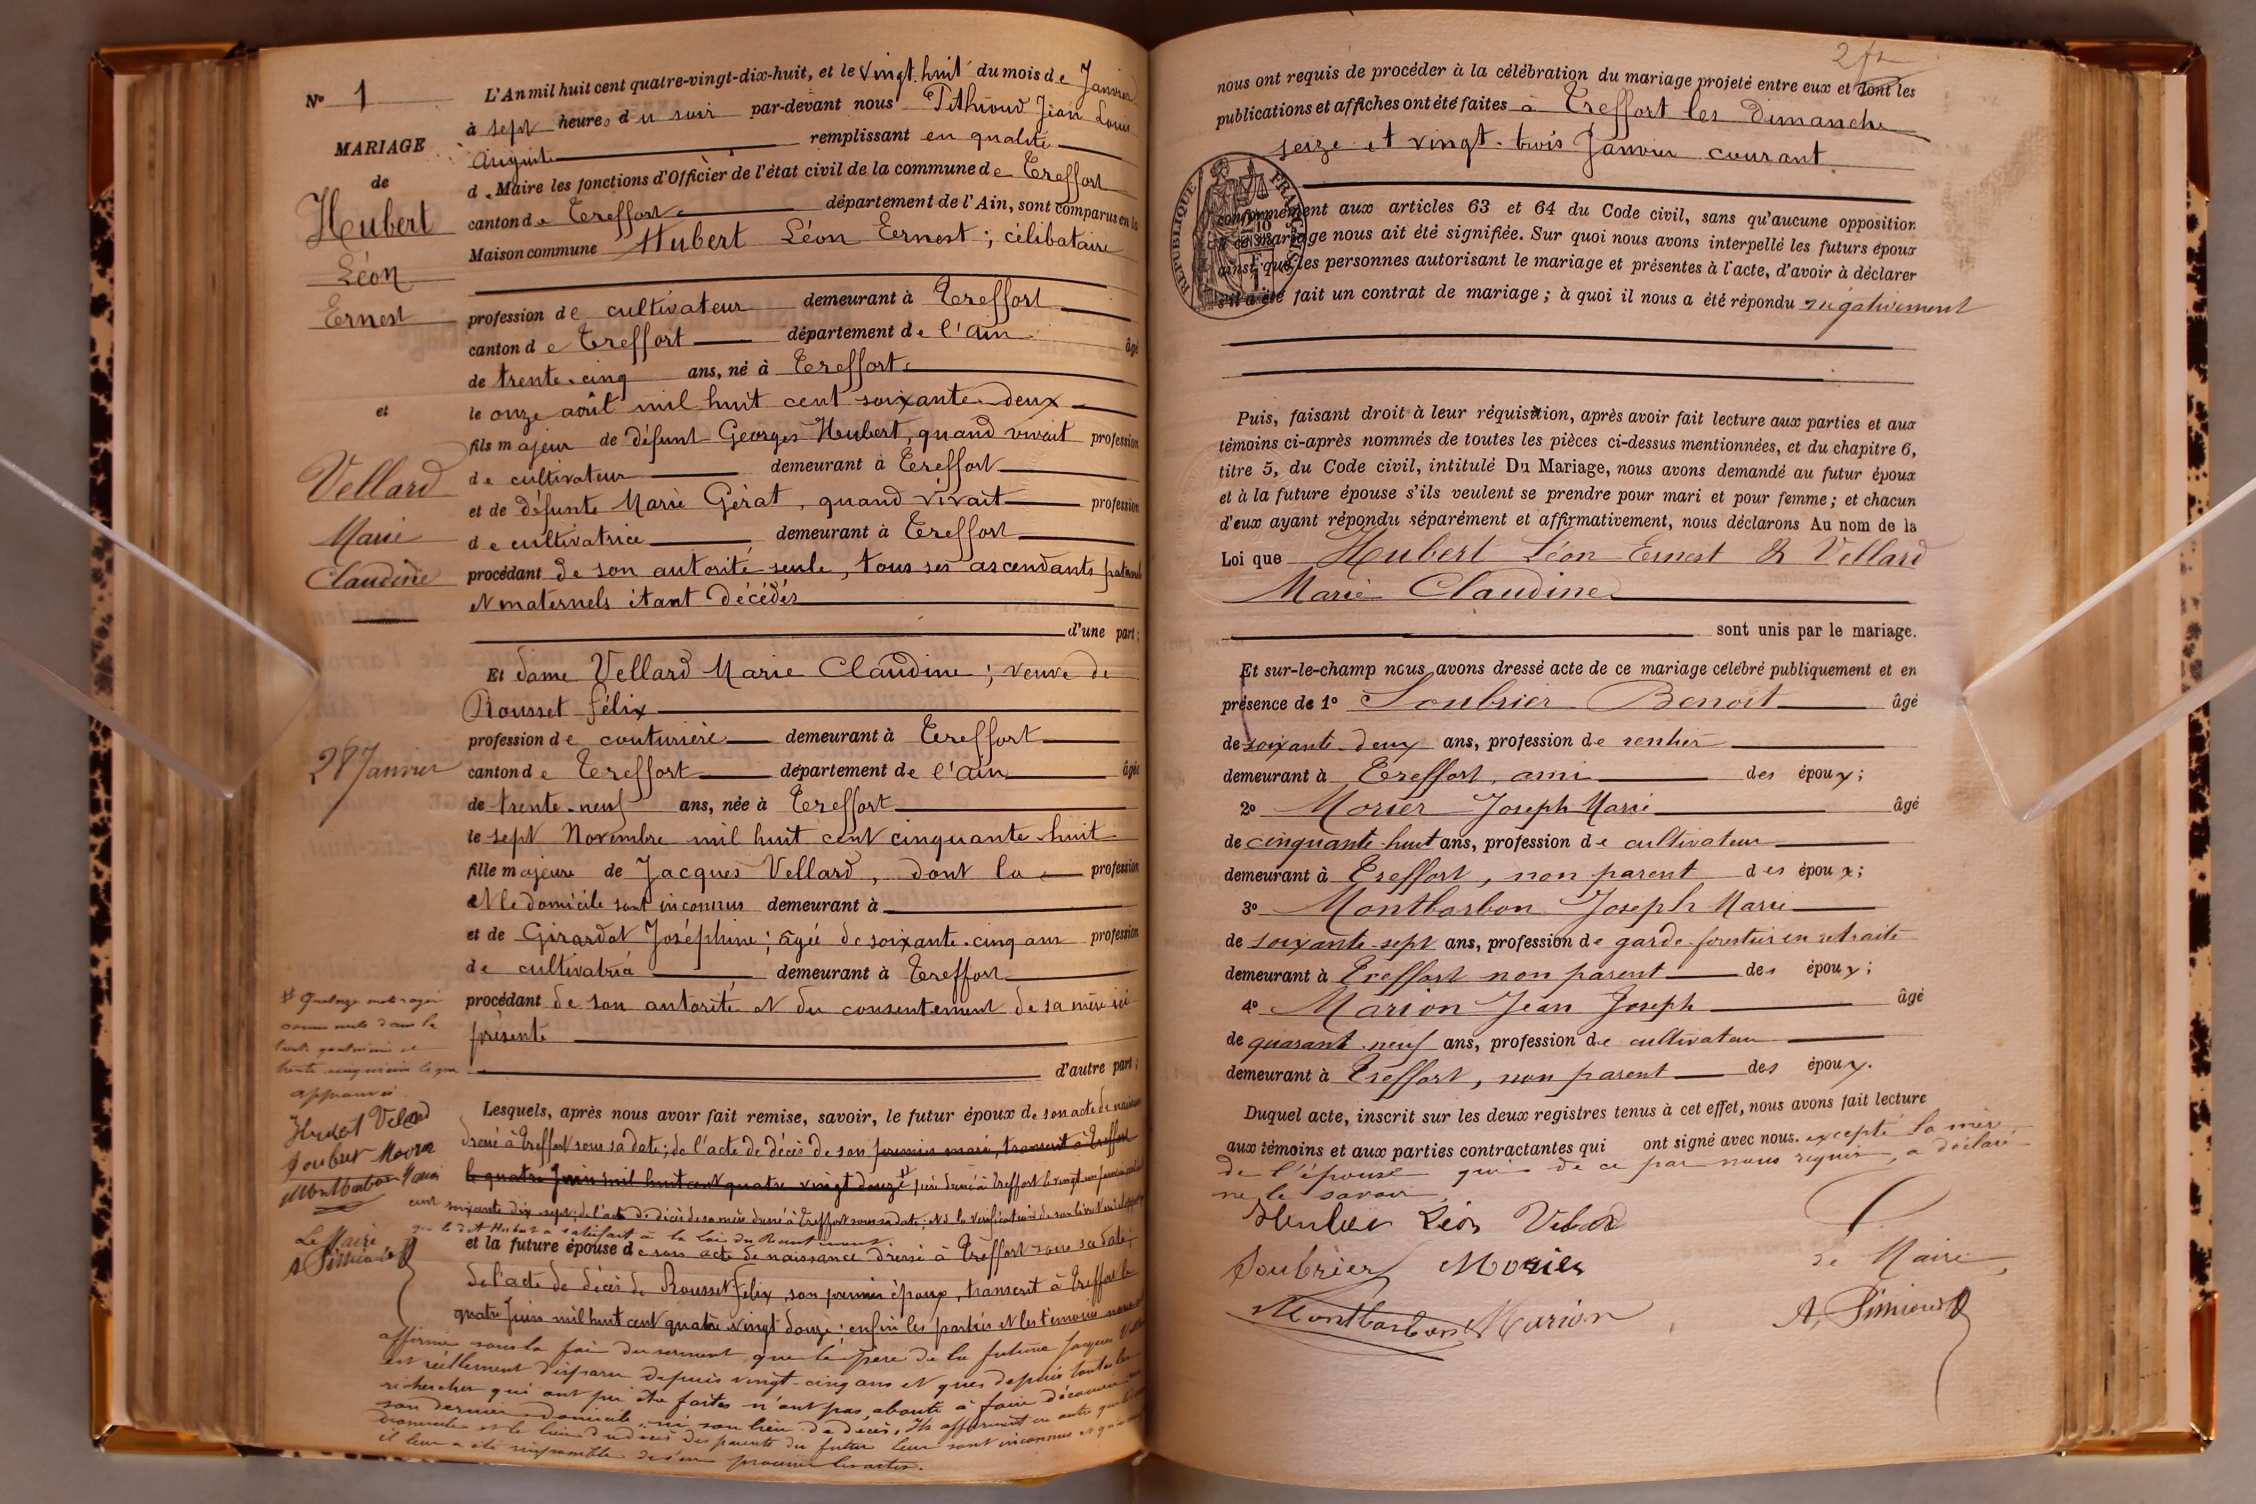 N° 1
MARIAGE
de
Hubert
Léon
Ernest
et
Vellard
Marie
Claudine
28 Janvier
# Quatorze mots rayés
comme nuls dans la
trente quatrième et
trente cinquième ligne
approuvés.
Hubert Velard
Soubrier Morier
Montbarbon Marion
Le Maire
A Pithioud
L'An mil huit cent quatre-vingt-dix-huit, et le vingt huit du mois de Janvier
à sept heures du soir par-devant nous Pithioud Jean Louis
Auguste remplissant en qualité
de Maire les fonctions d'Officier de l'état civil de la commune de Treffort
canton de Treffort département de l'Ain, sont comparus en la
Maison commune Hubert Léon Ernest ; célibataire
profession de cultivateur demeurant à Treffort
canton de Treffort département de l'Ain âgé
de trente-cinq ans, né à Treffort
le onze août mil huit cent soixante-deux
fils majeur de défunt Georges Hubert, quand vivait profession
de cultivateur demeurant à Treffort
et de défunte Marie Gérat, quand vivait profession
de cultivatrice demeurant à Treffort
procédant de son autorité seule, tous ses ascendants paternels
et maternels étant décédés
d'une part ;
Et dame Vellard Marie Claudine ; veuve de
Rousset Félix
profession de couturière demeurant à Treffort
canton de Treffort département de l'Ain âgée
de trente-neuf ans, née à Treffort
le sept Novembre mil huit cent cinquante-huit
fille majeure de Jacques Vellard, dont la profession
et le domicile sont inconnus demeurant à
et de Girardot Joséphine ; âgée de soixante-cinq ans profession
de cultivatrice demeurant à Treffort
procédant de son autorité et du consentement de sa mère ici
présente
d'autre part ;
Lesquels, après nous avoir fait remise, savoir, le futur époux de son acte de naissance
dressé à Treffort sous sa date ; de l'acte de décès de son premier mari, transcrit à Treffort
le quatre Juin mil huit cent quatre vingt douze # père dressé à Treffort le vingt un
cent soixante dix sept ; de l'acte de décès de sa mère dressé à Treffort sous sa date ; et de la vérification de son livret
que le dit Hubert a satisfait à la loi du Recrutement.
et la future épouse de son acte de naissance dressé à Treffort sous sa date ;
de l'acte de décès de Rousset Félix, son premier époux, transcrit à Treffort le
quatre Juin mil huit cent quatre vingt douze ; enfin les parties et les témoins nous ont
affirmé sous la foi du serment que le père de la future Jacques Vellard
est réellement disparu depuis vingt-cinq ans et que depuis toutes les
recherches qui ont pu être faites n'ont pas abouti à faire découvrir
son dernier domicile, ni son lieu de décès. Ils affirment en outre que le
domicile et le lieu du décès des parents du futur leur sont inconnus et qu'
il leur a été impossible de s'en procurer les actes.
2 fr
nous ont requis de procéder à la célébration du mariage projeté entre eux et dont les
publications et affiches ont été faites à Treffort les dimanche
seize et vingt-trois Janvier courant
REPUBLIQUE FRANÇAISE
conformément aux articles 63 et 64 du Code civil, sans qu'aucune opposition
à ce mariage nous ait été signifiée. Sur quoi nous avons interpellé les futurs époux
ainsi que les personnes autorisant le mariage et présentes à l'acte, d'avoir à déclarer
s'il a été fait un contrat de mariage ; à quoi il nous a été répondu négativement
Puis, faisant droit à leur réquisition, après avoir fait lecture aux parties et aux
témoins ci-après nommés de toutes les pièces ci-dessus mentionnées, et du chapitre 6,
titre 5, du Code civil, intitulé Du Mariage, nous avons demandé au futur époux
et à la future épouse s'ils veulent se prendre pour mari et pour femme ; et chacun
d'eux ayant répondu séparément et affirmativement, nous déclarons Au nom de la
Loi que Hubert Léon Ernest & Vellard
Marie Claudine
sont unis par le mariage.
Et sur-le-champ nous avons dressé acte de ce mariage célébré publiquement et en
présence de 1° Soubrier Benoit âgé
de soixante-deux ans, profession de rentier
demeurant à Treffort, ami des époux ;
2° Morier Joseph Marie âgé
de cinquante-huit ans, profession de cultivateur
demeurant à Treffort, non parent des époux ;
3° Montbarbon Joseph Marie
de soixante-sept ans, profession de garde-forestier en retraite
demeurant à Treffort non parent des époux ;
4° Marion Jean Joseph âgé
de quarante-neuf ans, profession de cultivateur
demeurant à Treffort, non parent des époux.
Duquel acte, inscrit sur les deux registres tenus à cet effet, nous avons fait lecture
aux témoins et aux parties contractantes qui ont signé avec nous. excepté la mère
de l'épouse qui de ce par nous requis, a déclaré
ne le savoir.
Hubert Léon Velard
Soubrier Morier
Le Maire,
Montbarbon Marion
A. Pithioud